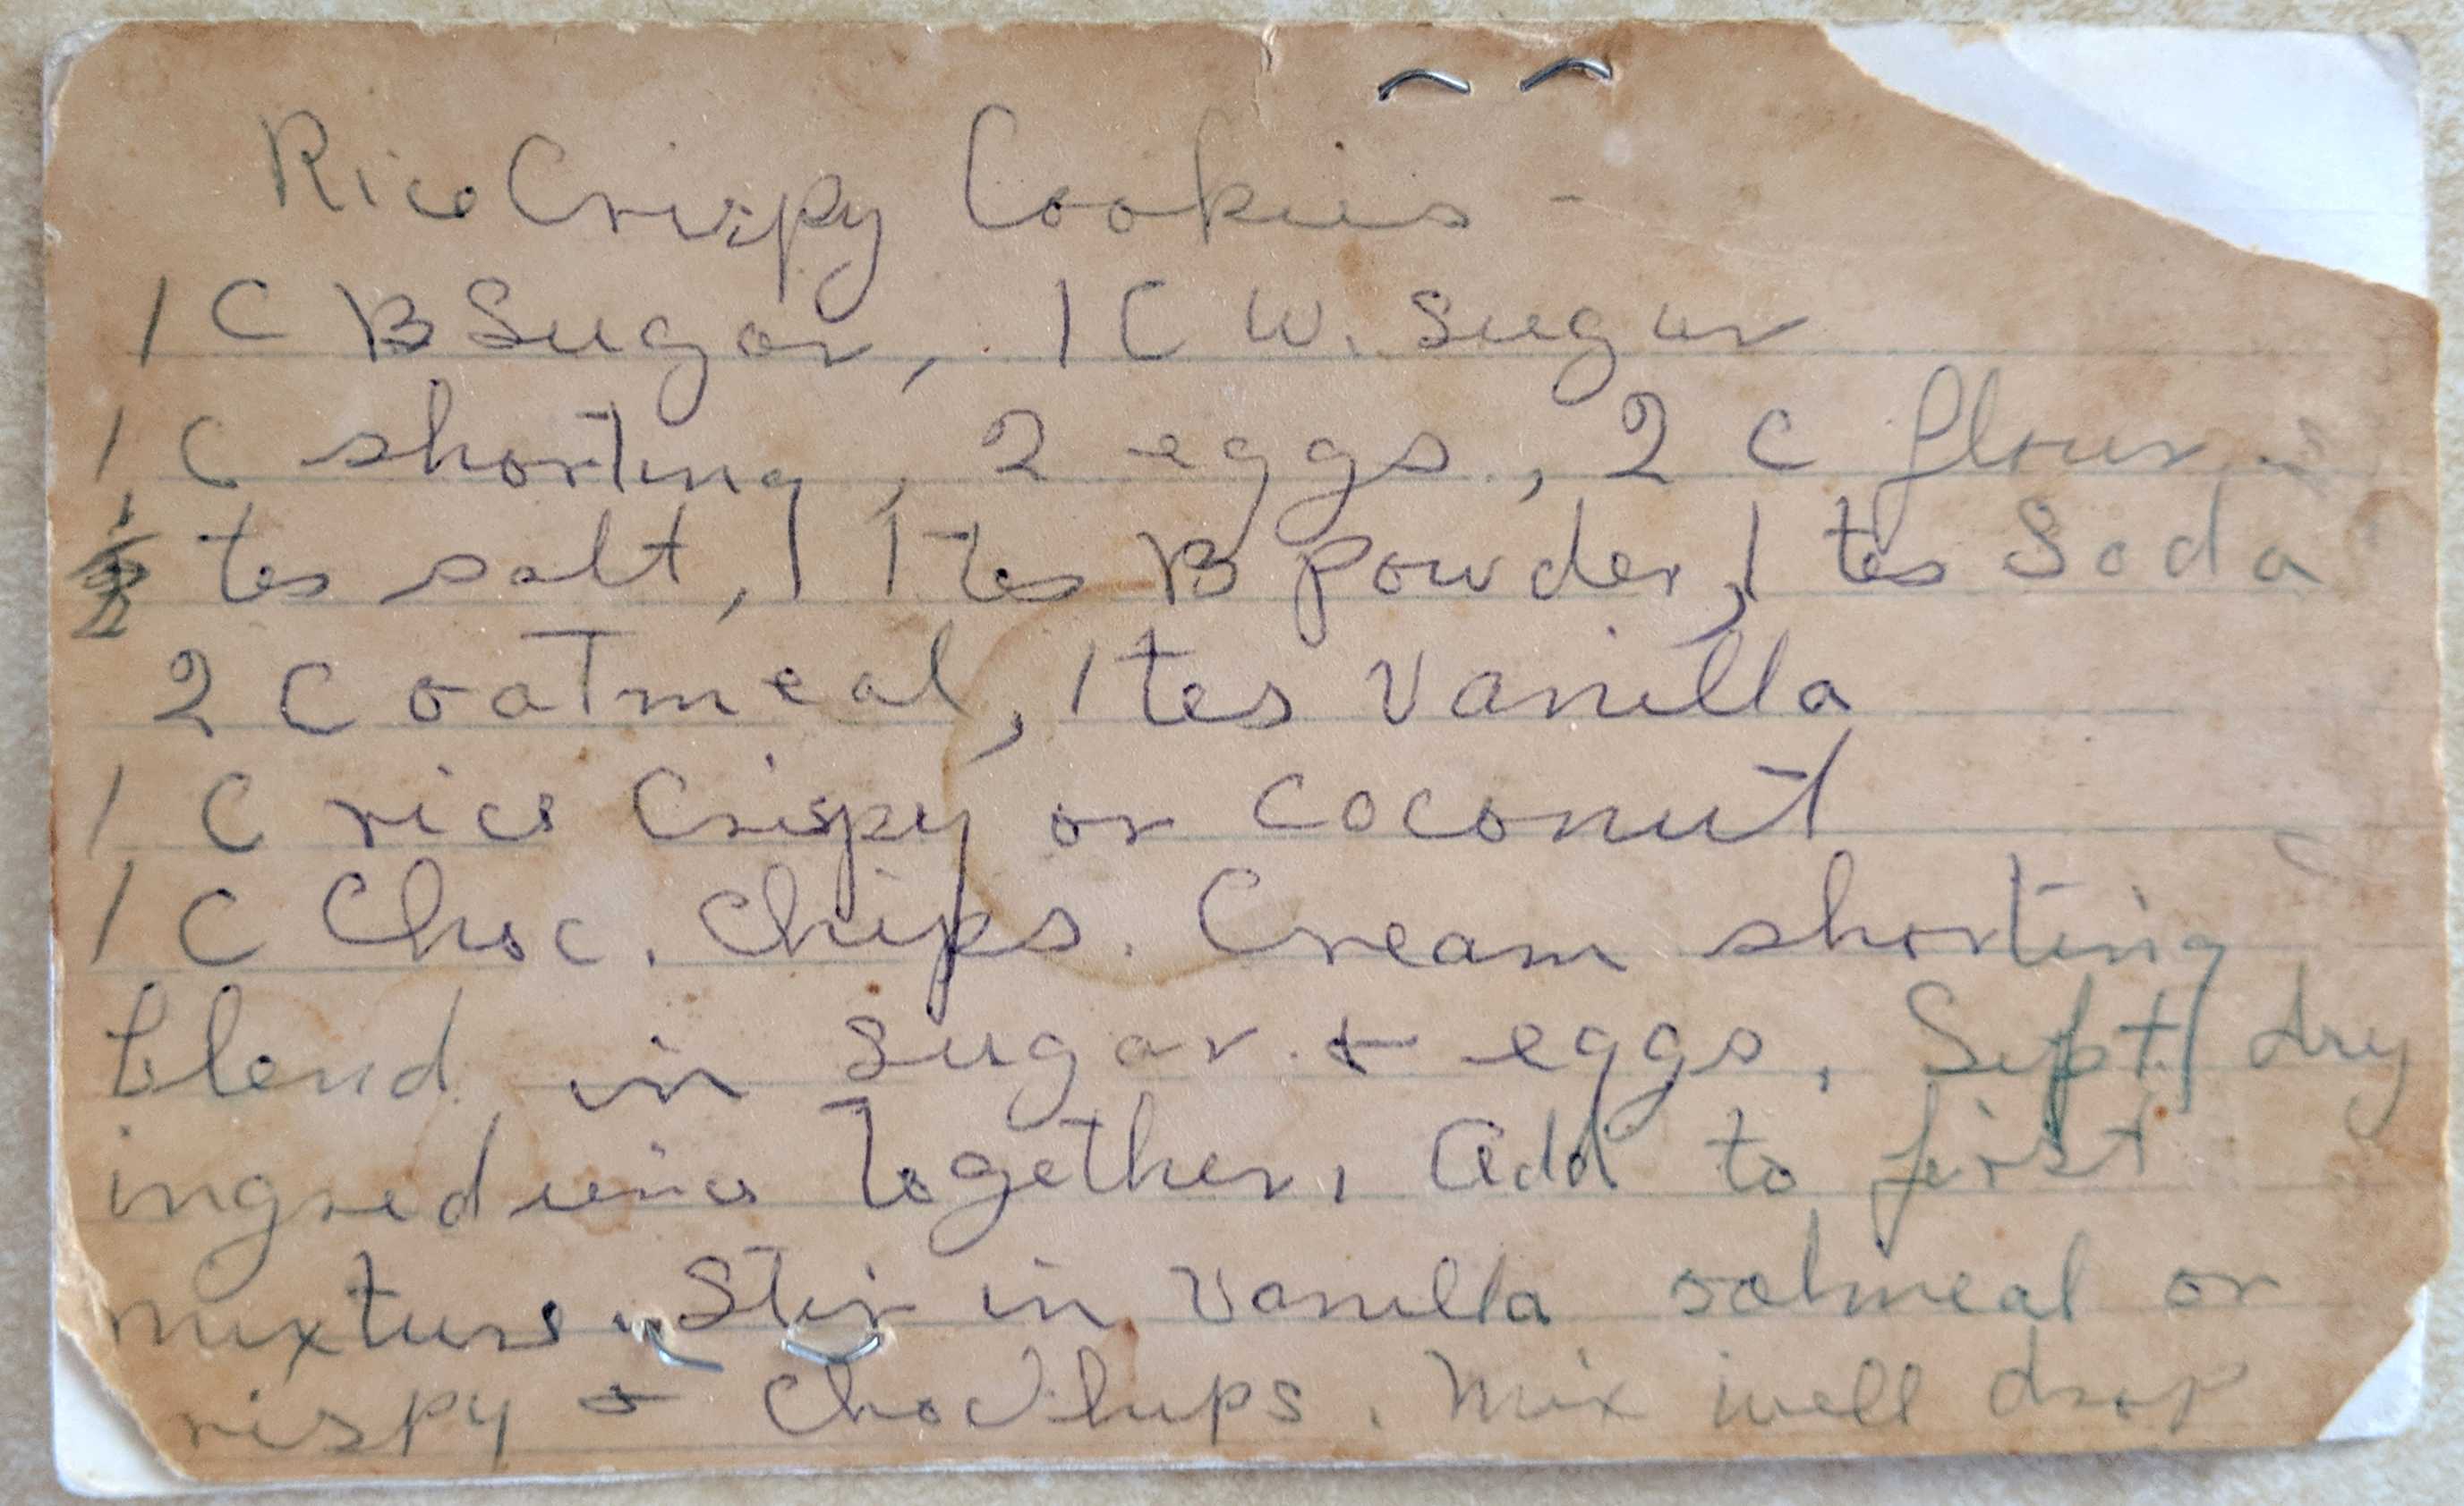 Rice Crispy Cookies -
1 C B Sugar, 1 C W. Sugar
1 C shorting, 2 eggs, 2 C flour
1/2 tes salt, 1 tes B powder, 1 tes Soda
2 C oatmeal, 1 tes Vanilla
1 C rice Crispy or coconut
1 C Choc. Chips. Cream shorting
blend in sugar + eggs, Sift dry
together, add to first
mixture. Stir in Vanilla oatmeal or
rispy + Choc Chips. Mix well drop